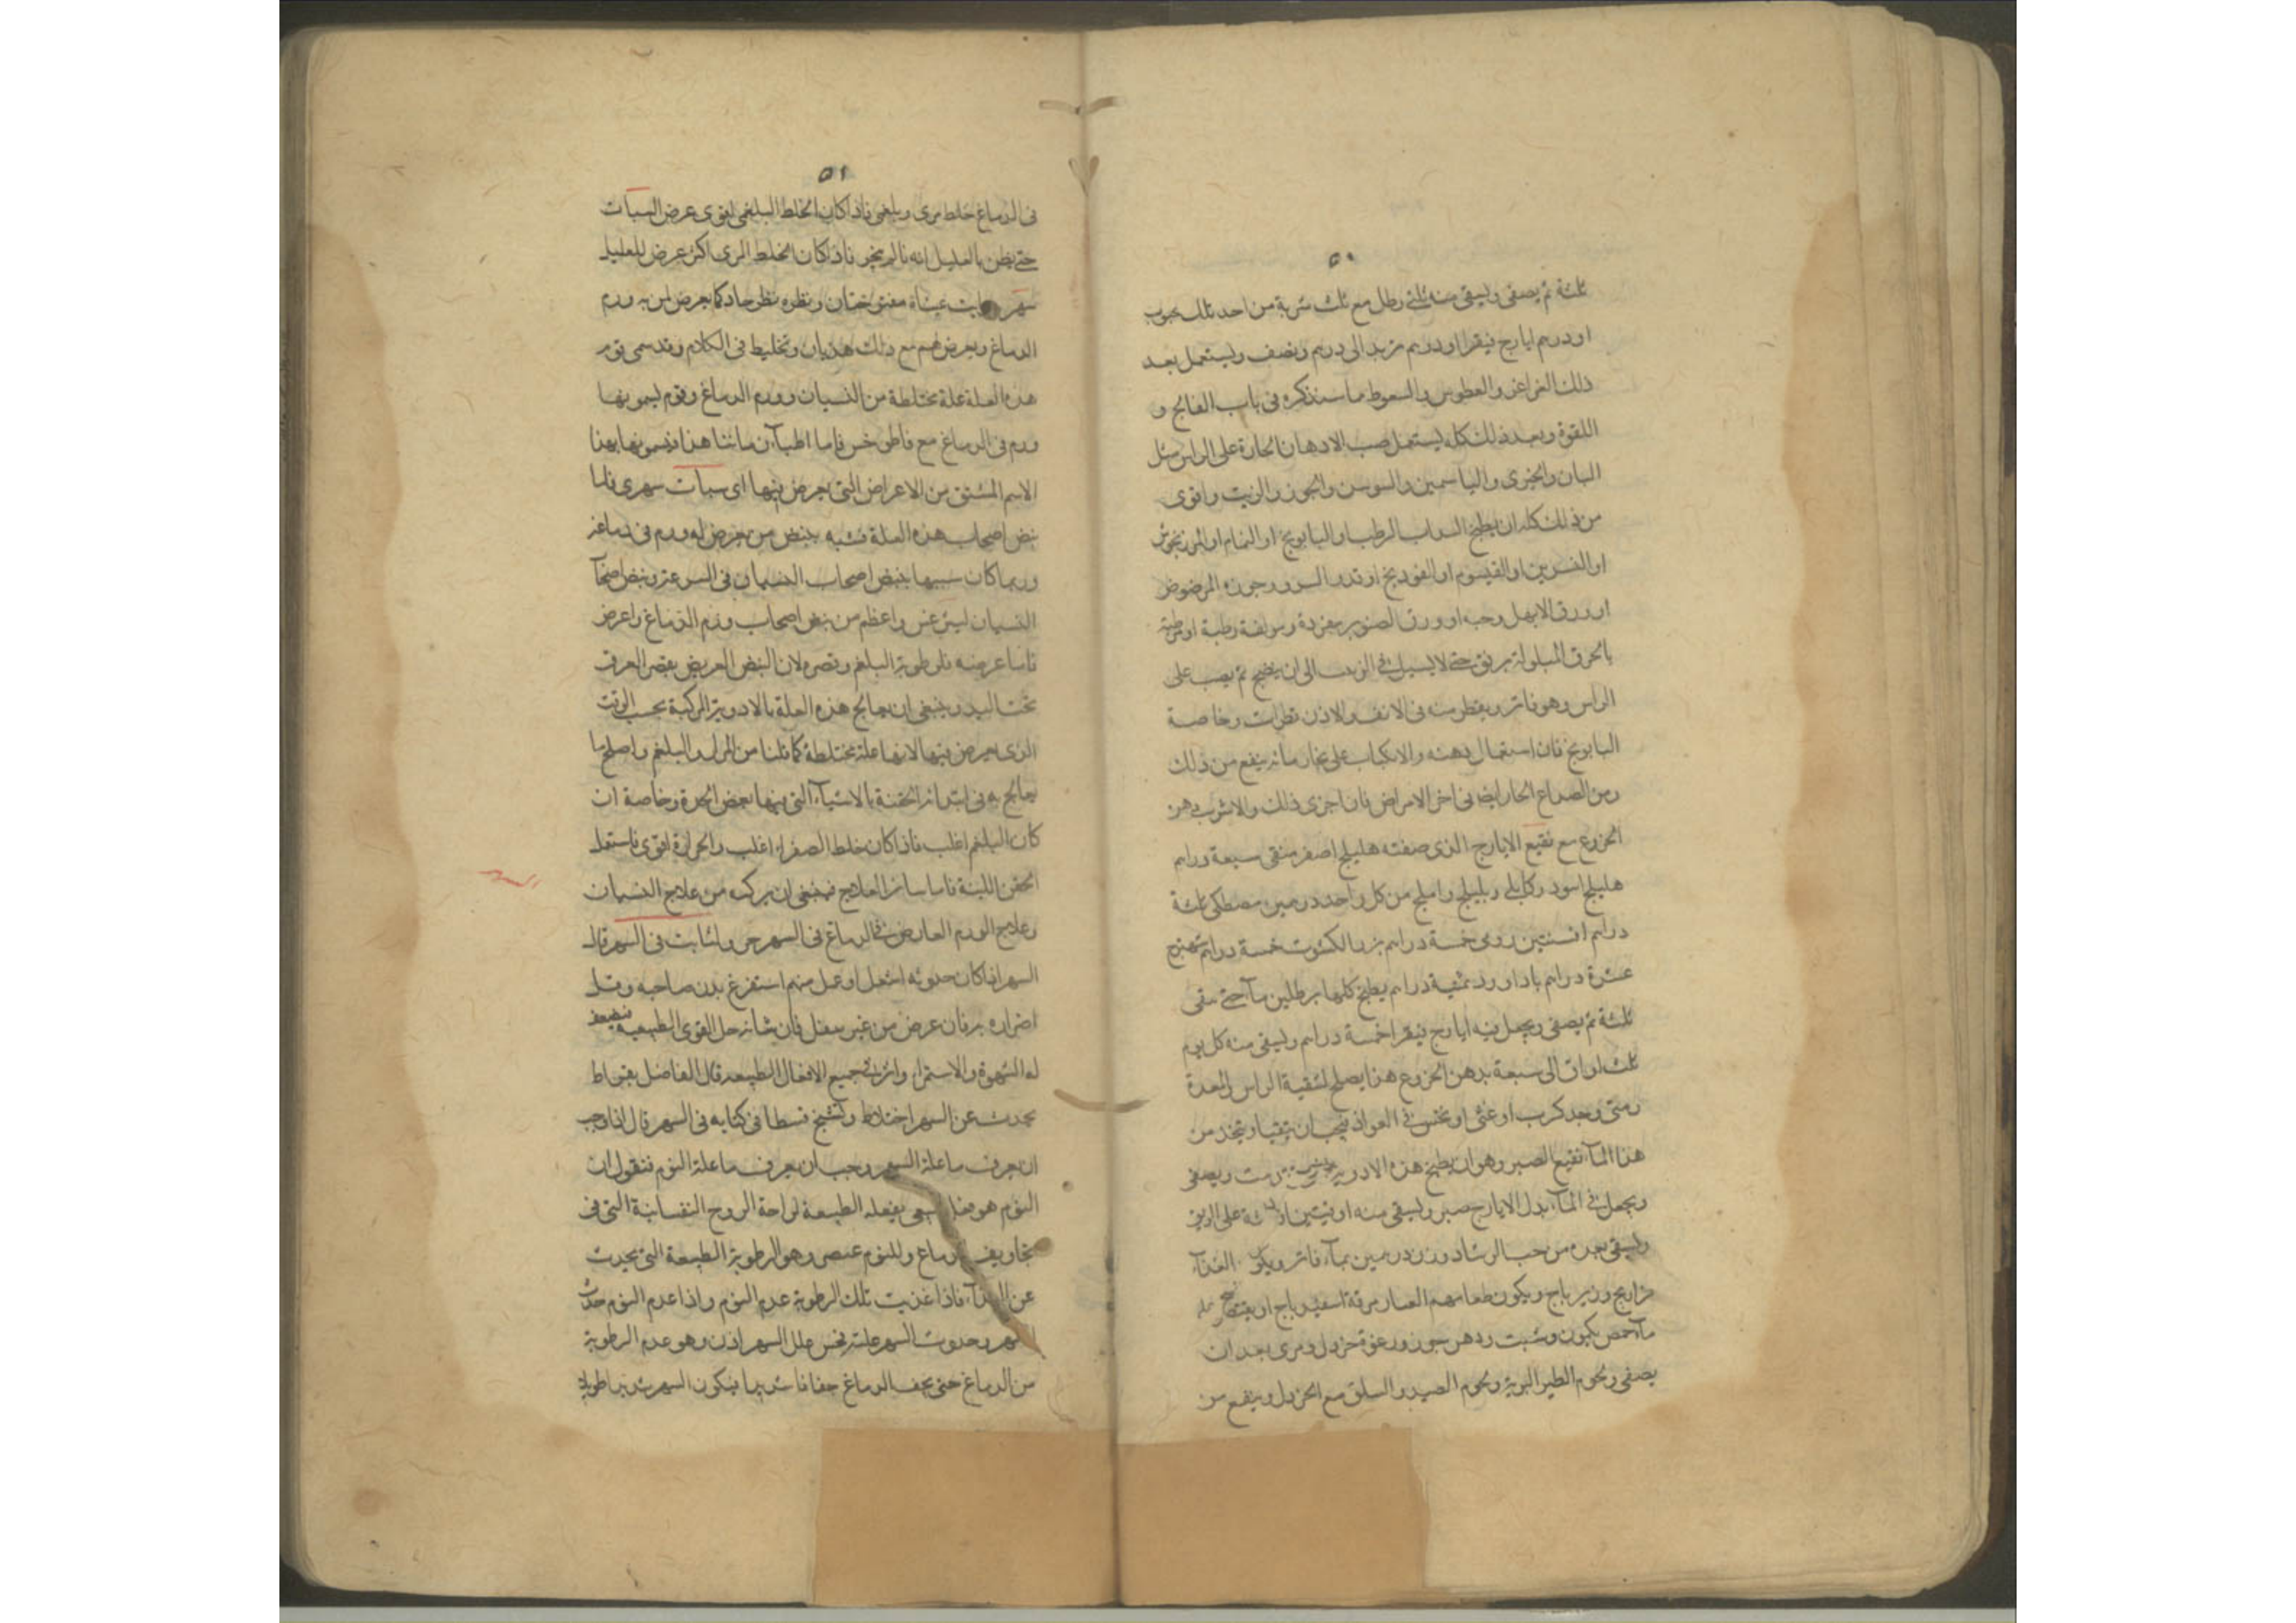 ٥٠
ثلثة ثم يصفى ويسقى منه ثلثى رطل مع ثلث شربة من احد تلك حبوب
او درهم ايارج فيقرا او درهم مزيد الى درهم ونصف ويستعمل بعد
ذلك الغراغر والعطوس والسعوط ما سنذكره فى باب الفالج و
اللقوة وبعد ذلك كله يستعمل صب الادهان الحارة على الراس مثل
البان والخيرى والياسمين والسوسن والجوز والزيت واقوى
من ذلك كله ان يطبخ السداب الرطب او البابونج او النمام او المرزنجوش
او النسرين او القيسوم او الفودنج او السرو وجوزه المرضوض
او ورق الابهل وحبه او ورق الصنوبر مفردة ومولفة رطبة او
بالخرق المبلولة برفق حتى لا يسيل فى الزيت الى ان ينضج ثم يصب على
الراس وهو فاتر ويقطر منه فى الانف والاذن قطرات وخاصة
البابونج فان استعمال دهنه والانكباب على بخار مائه ينفع من ذلك
ومن الصداع الحار ايضا فى اخر الامراض فان اجزى ذلك والا شرب دهن
الخروع مع نقيع الايارج الذى صفته هليلج اصفر منقى سبعة دراهم
هليلج اسود وكابلى وبليلج واملج من كل واحد درهمين مصطكى ثلثة
دراهم افسنتين رومى خمسة دراهم بزر الكشوث خمسة دراهم شهترج
عشرة دراهم باداورد ثمنية دراهم يطبخ كلها برطلين ماآ حتى يبقى
ثلثة ثم يصفى ويجعل فيه ايارج فيقرا خمسة دراهم ويسقى منه كل يوم
ثلث اواق الى سبعة بدهن الخروع هذا يصلح لتنقية الراس والمعدة
ومتى وجد كرب او غثى او نخس فى الفواد فيجب ان يتقيا ويتخذ من
هذا المآء نقيع الصبر وهو ان يطبخ هذه الادوية ويصفى
ويجعل فى المآء بدل الايارج صبر ويسقى منه اوقيتين او ثلثة على الريق
ويسقى بعده من حب الرشاد وزن درهمين بمآء فاتر ويكون الغذآء
فراريج وزيرباج ويكون طعامهم العصار مرقة اسفيدباج او يقتصر
مآء حمص بكمون وشبت ودهن جوز ورغوة خردل ومرى بعد ان
يصفى ولحوم الطير البرية ولحوم الصيد والسلق مع الخردل وينفع من
٥١
فى الدماغ خلط مرى وبلغمى فاذا كان الخلط البلغمى اقوى عرض السبات
حتى يظن بالعليل انه نائم فاذا كان الخلط المرى اكثر عرض للعليل
سهر عيناه مفتوحتان ونظره نظر حاد كما يعرض لمن به ورم
الدماغ ويعرض لهم مع ذلك هذيان وتخليط فى الكلام وقد سمى قوم
هذه العلة علة مختلطة من النسيان وورم الدماغ وقوم يسمونها
ورم فى الدماغ مع فاما اطبآء زماننا هذا فيسمونها بهذا
الاسم المشتق من الاعراض التى يعرض فيها اى سبات سهرى فاما
نبض اصحاب هذه العلة فشبه بنبض من يعرض له ورم فى دماغه
وربما كان شبيها بنبض اصحاب النسيان فى السرعة ونبض اصحاب
النسيان واعظم من نبض اصحاب ورم الدماغ واعرض
فاما عرضه فلرطوبة البلغم وقصره لان النبض العريض يقصر العرق
تحت اليد وينبغى ان يعالج هذه العلة بالادوية المركبة بحسب الوقت
الذى يعرض فيها لانها علة مختلطة كما قلنا من المرار والبلغم واصلح ما
يعالج به فى ابتدائه الحقنة بالاشيآء التى فيها بعض الحدة وخاصة ان
كان البلغم اغلب فاذا كان خلط الصفراء اغلب والحرارة اقوى فاستعمل
الحقن اللينة فاما سائر العلاج فينبغى ان يركب من علاج النسيان
وعلاج الورم العارض فى الدماغ فى السهر جن ولثابت فى السهر قال
السهر اذا كان حدوثه لشغل او عمل مهم استفرغ بدن صاحبه وقل
اضراره به فان عرض من غير شغل فان شانه حل القوى الطبيعية فتضعف
له الشهوة والاستمراء واثر فى جميع الافعال الطبيعة قال الفاضل بقراط
يحدث عن السهر اختلاط وتشنج قسطا فى كتابه فى السهر قال اذا وجب
ان يعرف ما علة السهر وجب ان يعرف ما علة النوم فنقول ان
النوم هو فعل طبيعى يفعله الطبيعة لراحة الروح النفسانية التى فى
تجاويف الدماغ وللنوم عنصر وهو الرطوبة الطبيعة التى يحدث
عن الغذآء فاذا فنيت تلك الرطوبة عدم النوم واذا عدم النوم حدث
السهر وحدوث السهر علل السهر اذن وهو عدم الرطوبة
من الدماغ حتى يجف الدماغ جفافا شديدا فيكون السهر شديدا طويلا